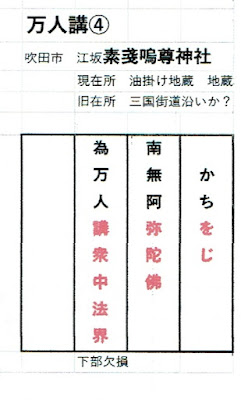 万人講④
吹田市　江坂素戔嗚尊神社
現在所　油掛け地蔵　地蔵
旧在所　三国街道沿いか？
かちをじ
南無阿弥陀佛
為万人講衆中法界
下部欠損